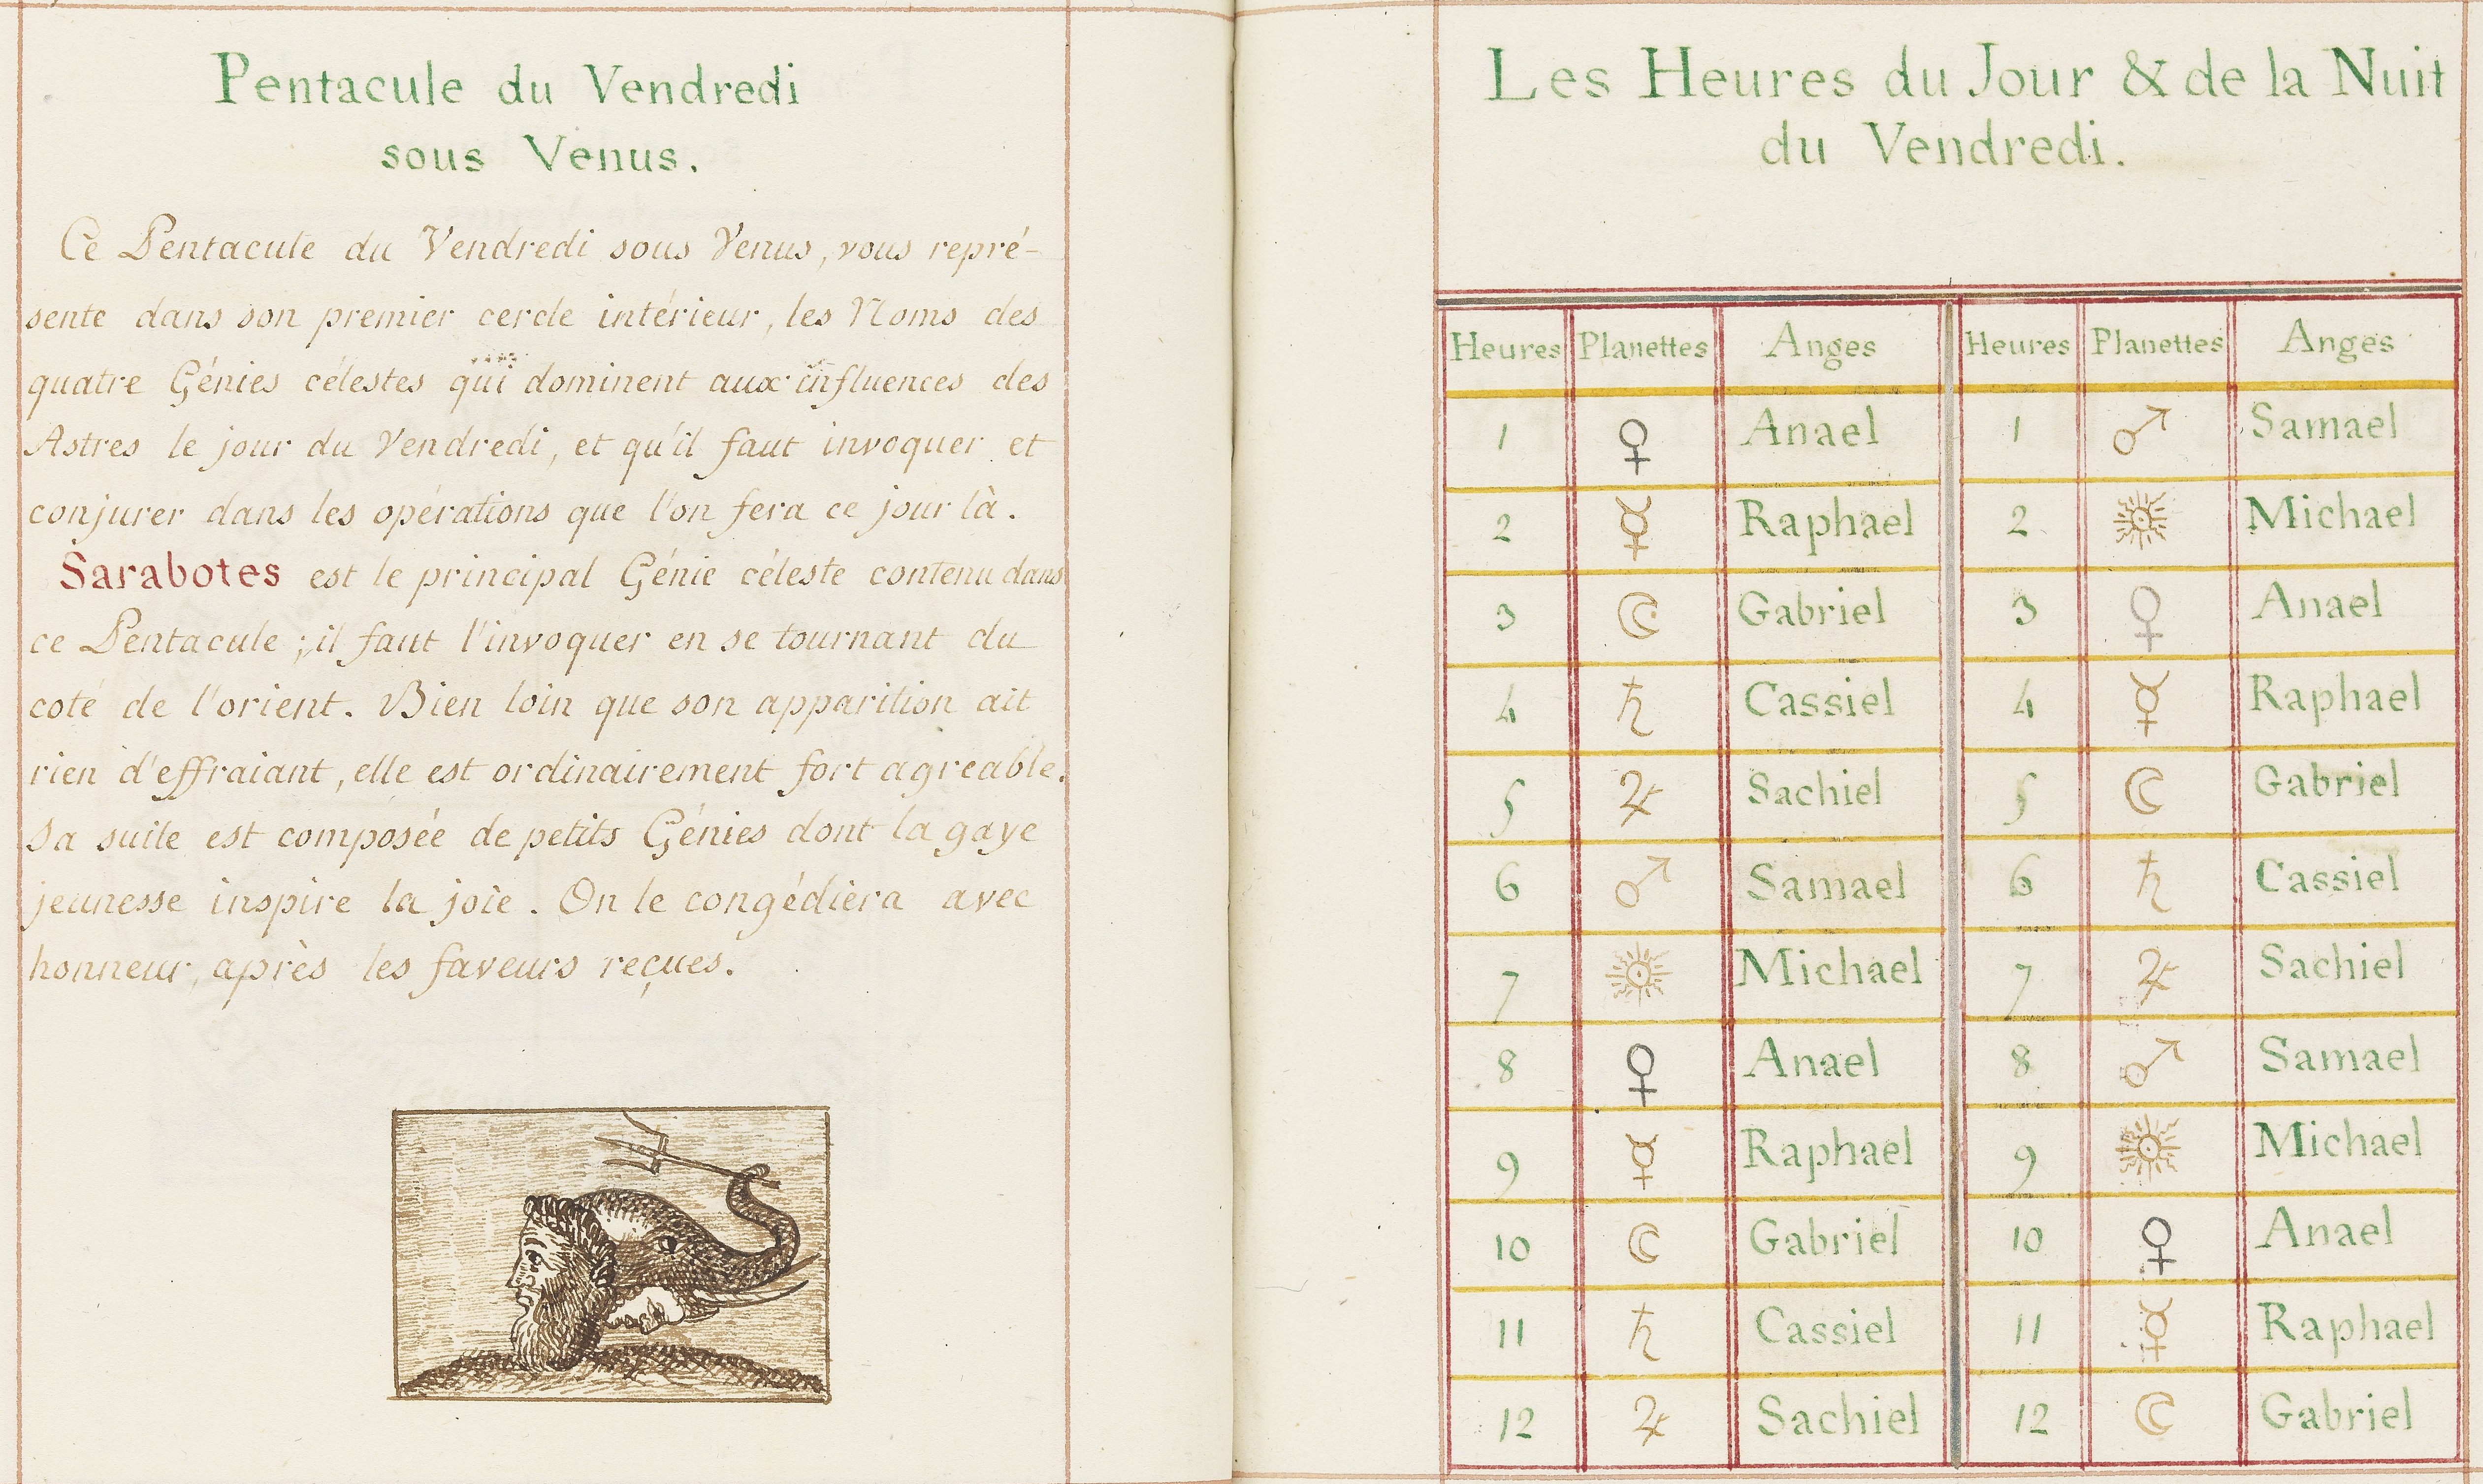 Pentacule du Vendredi
sous Venus.
Ce Pentacule du Vendredi sous Venus, vous repré-
sente dans son premier cercle intérieur, les Noms des
quatre Génies célestes qui dominent aux influences des
Astres le jour du Vendredi, et qu'il faut invoquer et
conjurer dans les opérations que l'on fera ce jour là.
Sarabotes est le principal Génie céleste contenu dans
ce Pentacule ; il faut l'invoquer en se tournant du
coté de l'orient. Bien loin que son apparition ait
rien d'effraiant, elle est ordinairement fort agreable.
Sa suite est composée de petits Génies dont la gaye
jeunesse inspire la joie. On le congédiera avec
honneur, après les faveurs reçues.
Les Heures du Jour & de la Nuit
du Vendredi.
Heures Planettes Anges Heures Planettes Anges
1 ♀ Anael 1 ♂ Samael
2 ☿ Raphael 2 ☉ Michael
3 ☾ Gabriel 3 ♀ Anael
4 ♄ Cassiel 4 ☿ Raphael
5 ♃ Sachiel 5 ☾ Gabriel
6 ♂ Samael 6 ♄ Cassiel
7 ☉ Michael 7 ♃ Sachiel
8 ♀ Anael 8 ♂ Samael
9 ☿ Raphael 9 ☉ Michael
10 ☾ Gabriel 10 ♀ Anael
11 ♄ Cassiel 11 ☿ Raphael
12 ♃ Sachiel 12 ☾ Gabriel